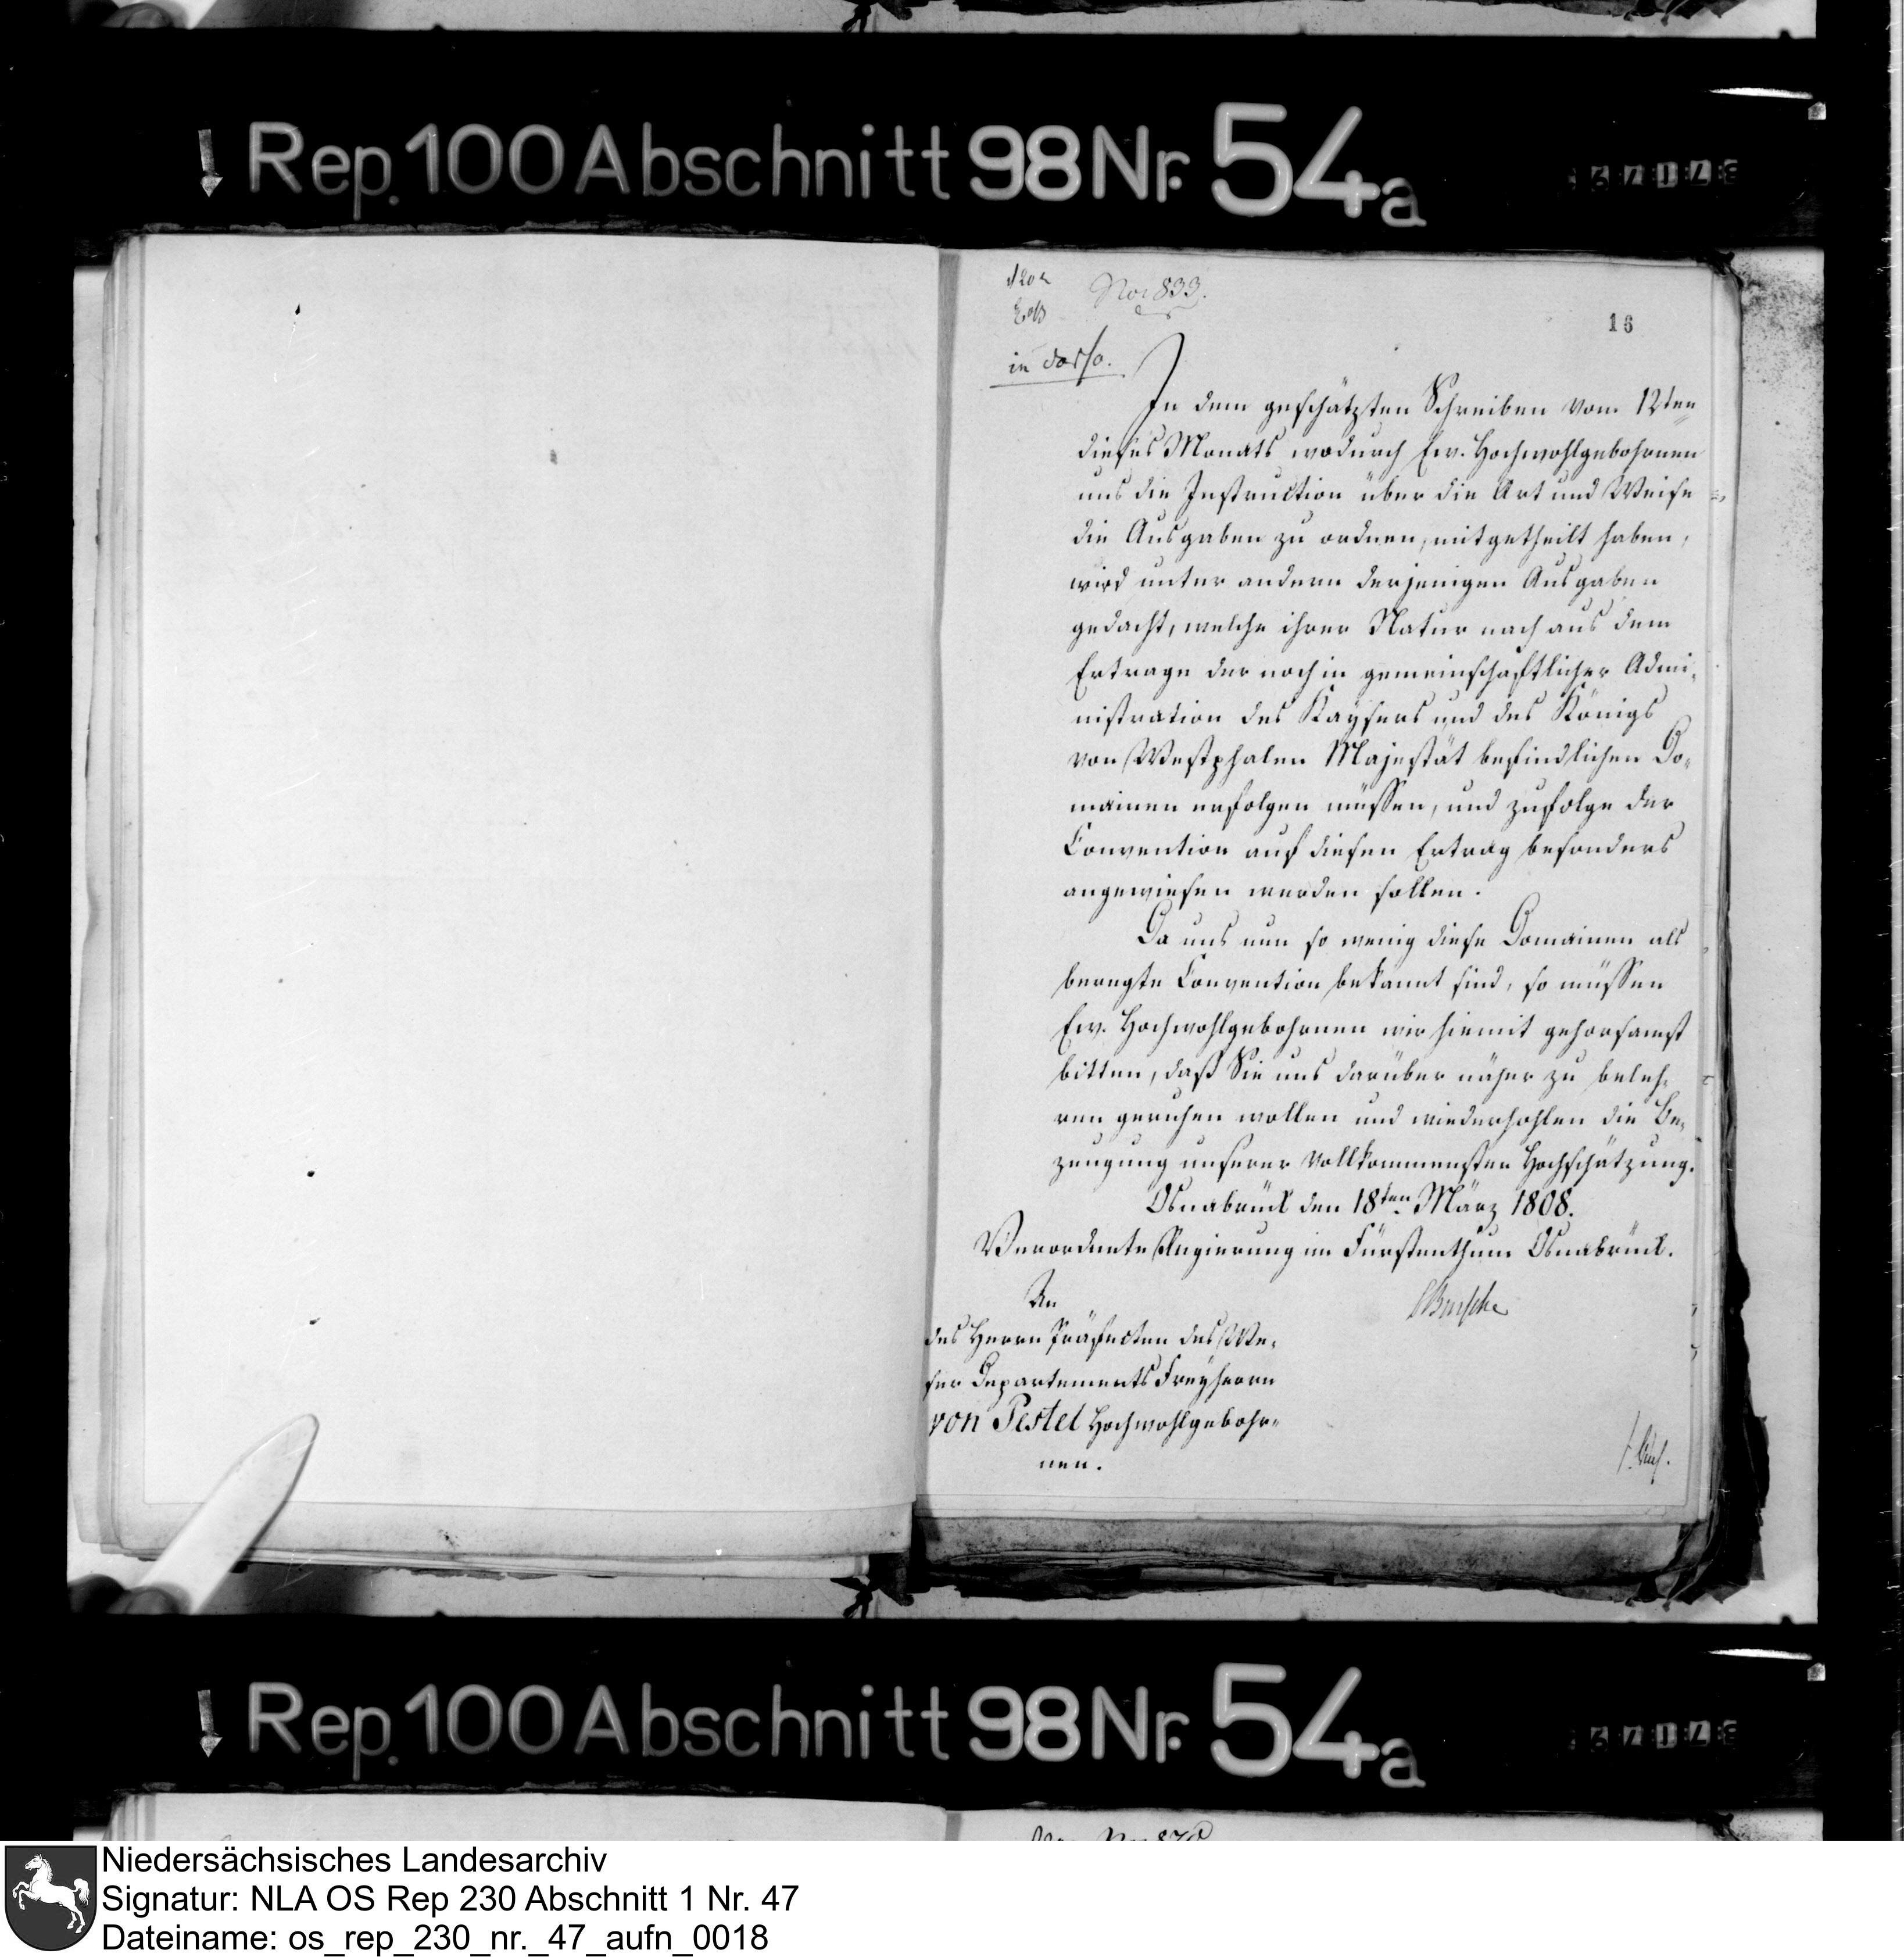 Rep. 100 Abschnitt 98 Nr. 54a
No: 833.
16
in dorso.
In dem geschätzten Schreiben vom 12ten
dieses Monats wodurch Ew. Hochwohlgebohrnen
uns die Instruction über die Art und Weise
die Ausgaben zu ordnen, mitgetheilt haben,
wird unter andern derjenigen Ausgaben
gedacht, welche ihrer Natur nach aus dem
Ertrage der noch in gemeinschaftlicher Admi-
nistration des Kaysers und des Königs
von Westphalen Majestät befindlichen Do-
mainen erfolgen müssen, und zufolge der
Convention auf diesen Ertrag besonders
angewiesen werden sollen.
Da uns nun so wenig diese Domainen als
beregte Convention bekannt sind, so müssen
Ew. Hochwohlgebohrnen wir hiemit gehorsamst
bitten, daß Sie uns darüber näher zu beleh-
ren geruhen wollen und wiederhohlen die Be-
zeugung unserer vollkommensten Hochschätzung.
Osnabrück den 18ten März 1808.
Verordnete Regierung im Fürstenthum Osnabrück.
Busche
An
des Herrn Präfecten des We-
ser Departements Freyherrn
von Pestel Hochwohlgebohr-
nen.
Rep. 100 Abschnitt 98 Nr. 54a
Niedersächsisches Landesarchiv
Signatur: NLA OS Rep 230 Abschnitt 1 Nr. 47
Dateiname: os_rep_230_nr._47_aufn_0018